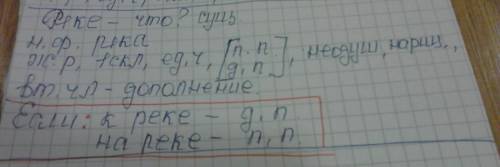 Реке - что? сущ
н.ф. река
ж.р, 1скл, ед.ч, [п.п. д.п], неодуш, нариц.,
вт.чл - дополнение.
Если: к реке - д.п
на реке - п,п.